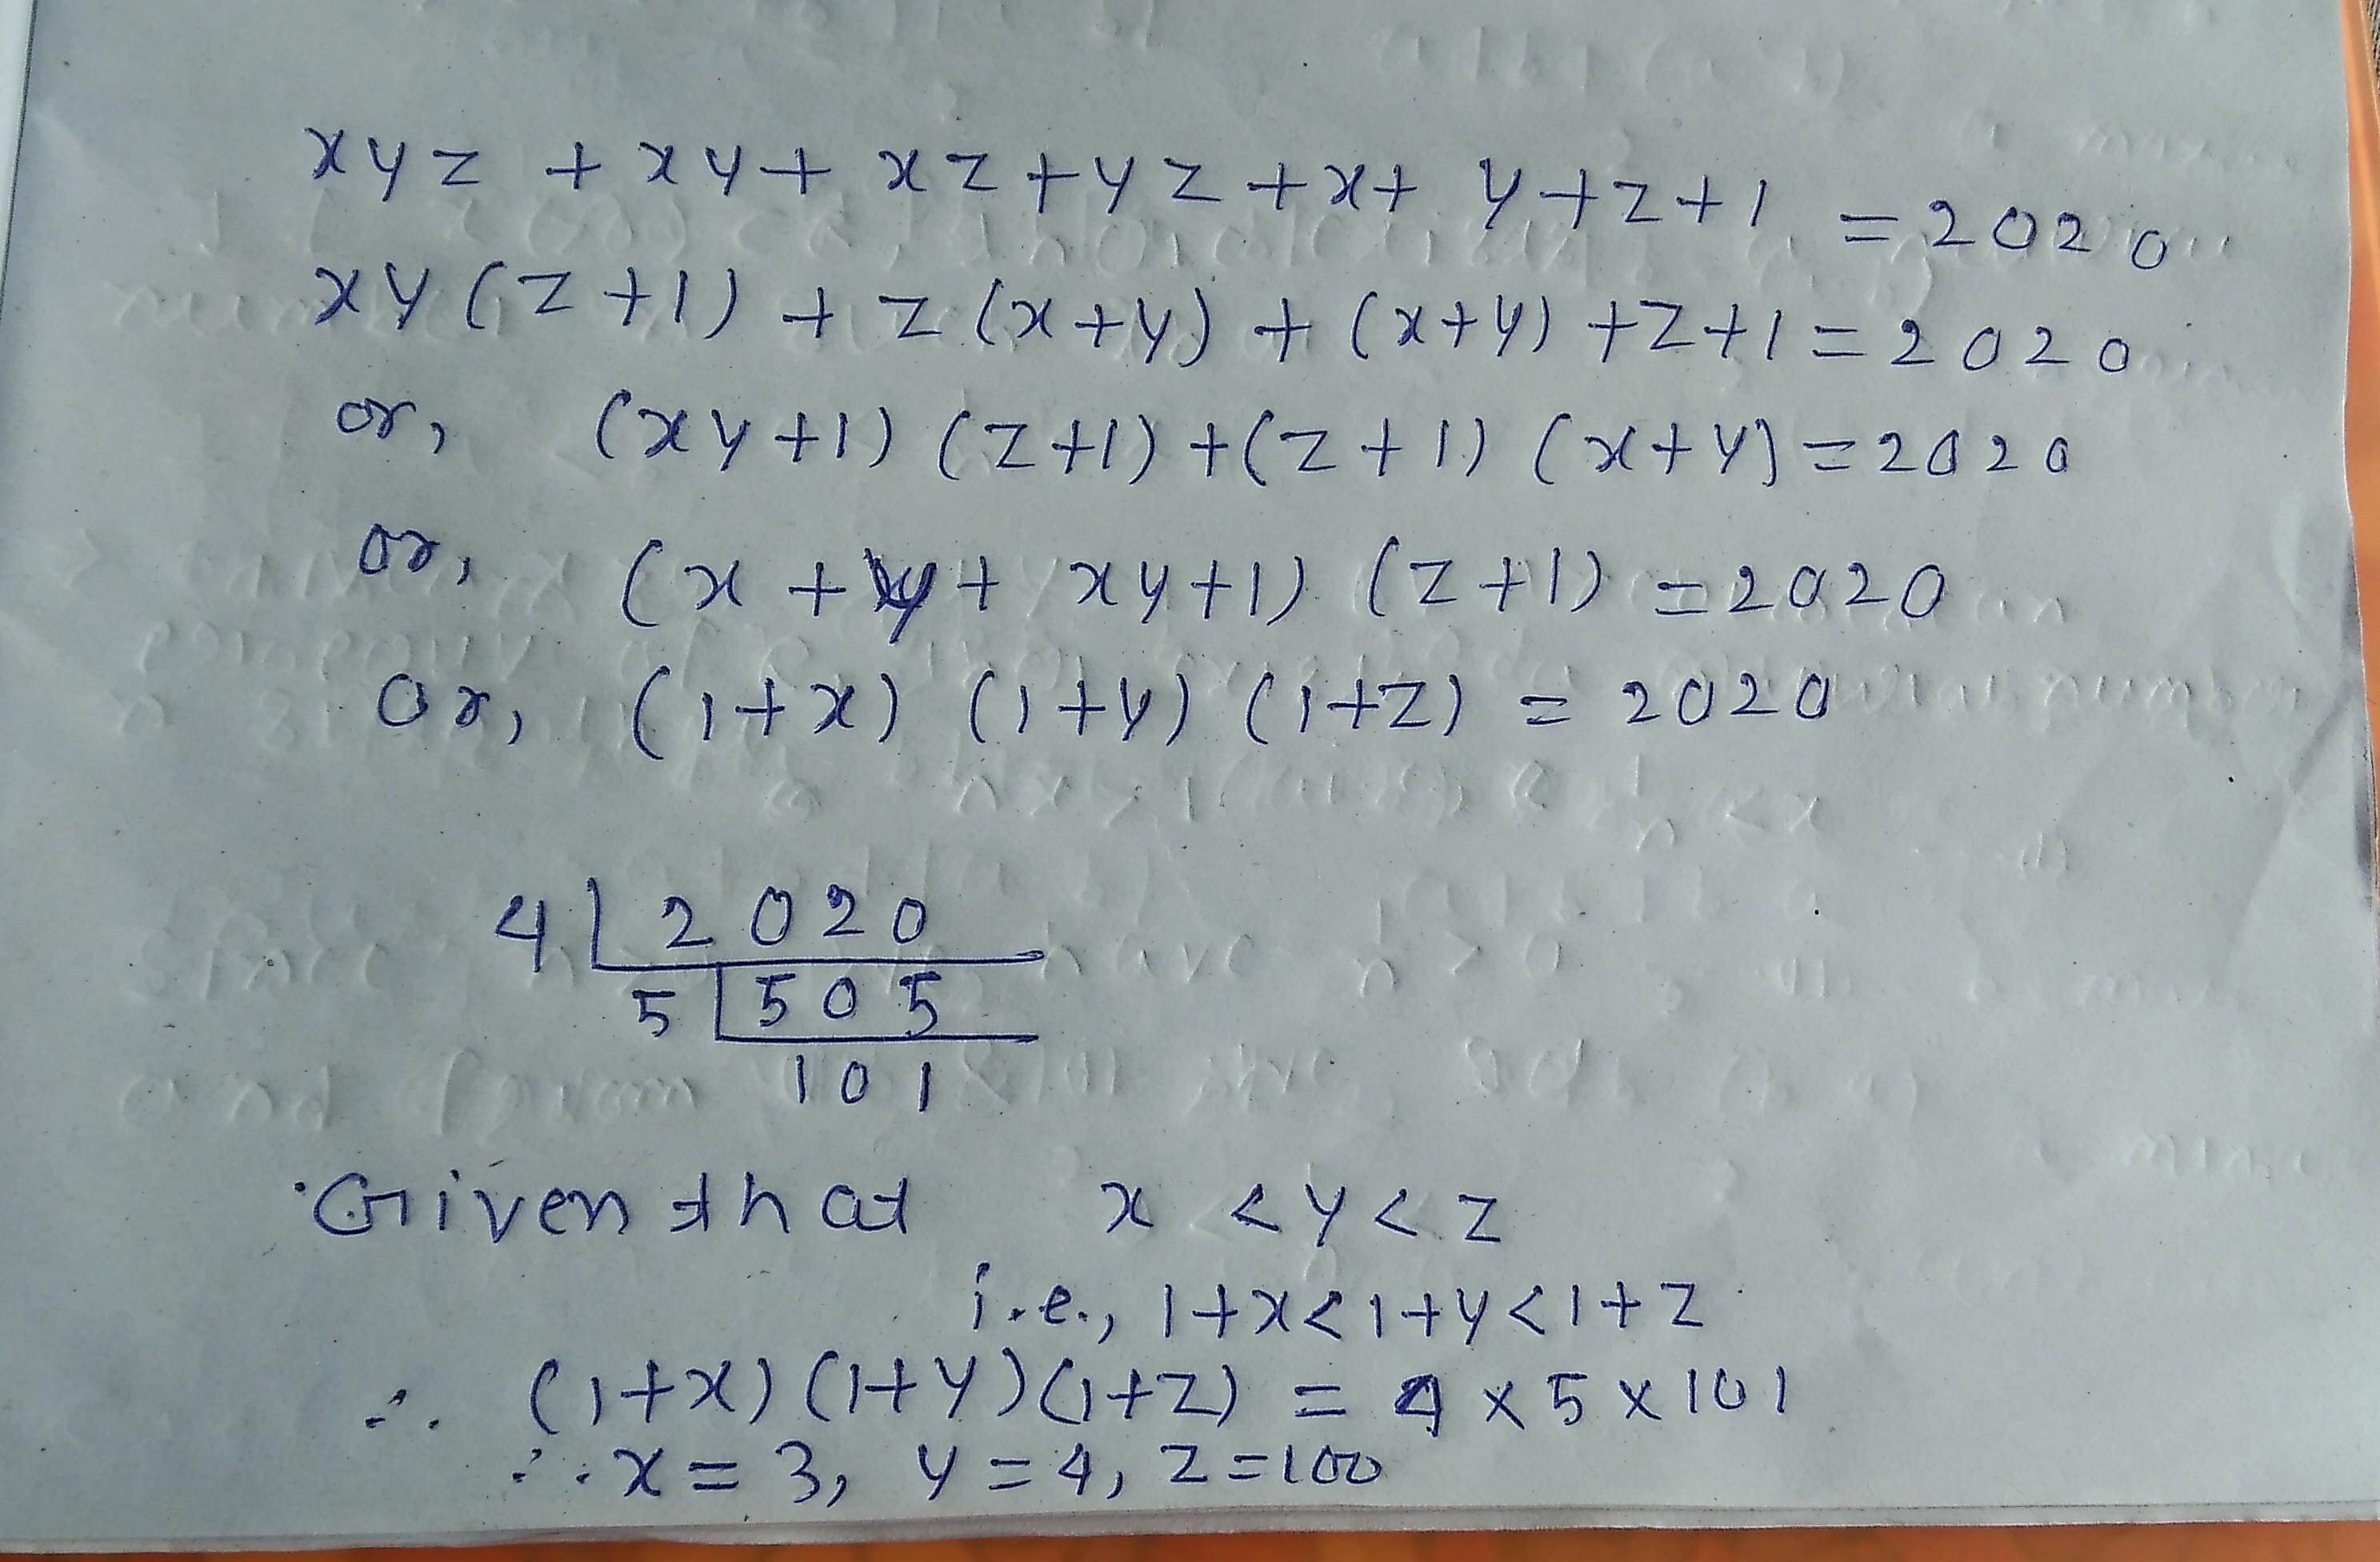 xyz + xy + xz + yz + x + y + z + 1 = 2020
xy(z+1) + z(x+y) + (x+y) + z + 1 = 2020
or, (xy+1)(z+1) + (z+1)(x+y) = 2020
or, (x + y + xy + 1)(z+1) = 2020
or, (1+x)(1+y)(1+z) = 2020
4 | 2020
5 | 505
101
Given that x < y < z
i.e., 1+x < 1+y < 1+z
∴ (1+x)(1+y)(1+z) = 4 × 5 × 101
∴ x = 3, y = 4, z = 100